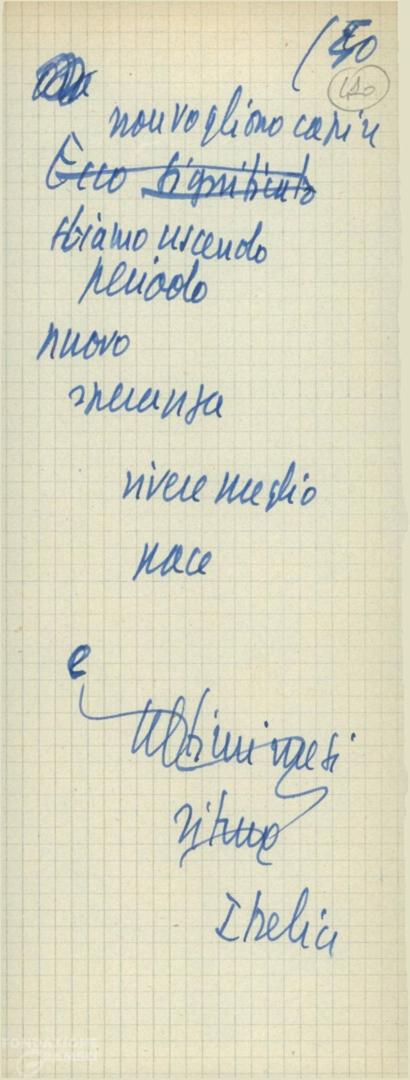 (50
150
non vogliono capire
Ecco significato
stiamo uscendo
periodo
nuovo
speranza
vivere meglio
pace
e
Ultimi mesi
ritmo
Italia
FONDAZIONE
GRAMSCI